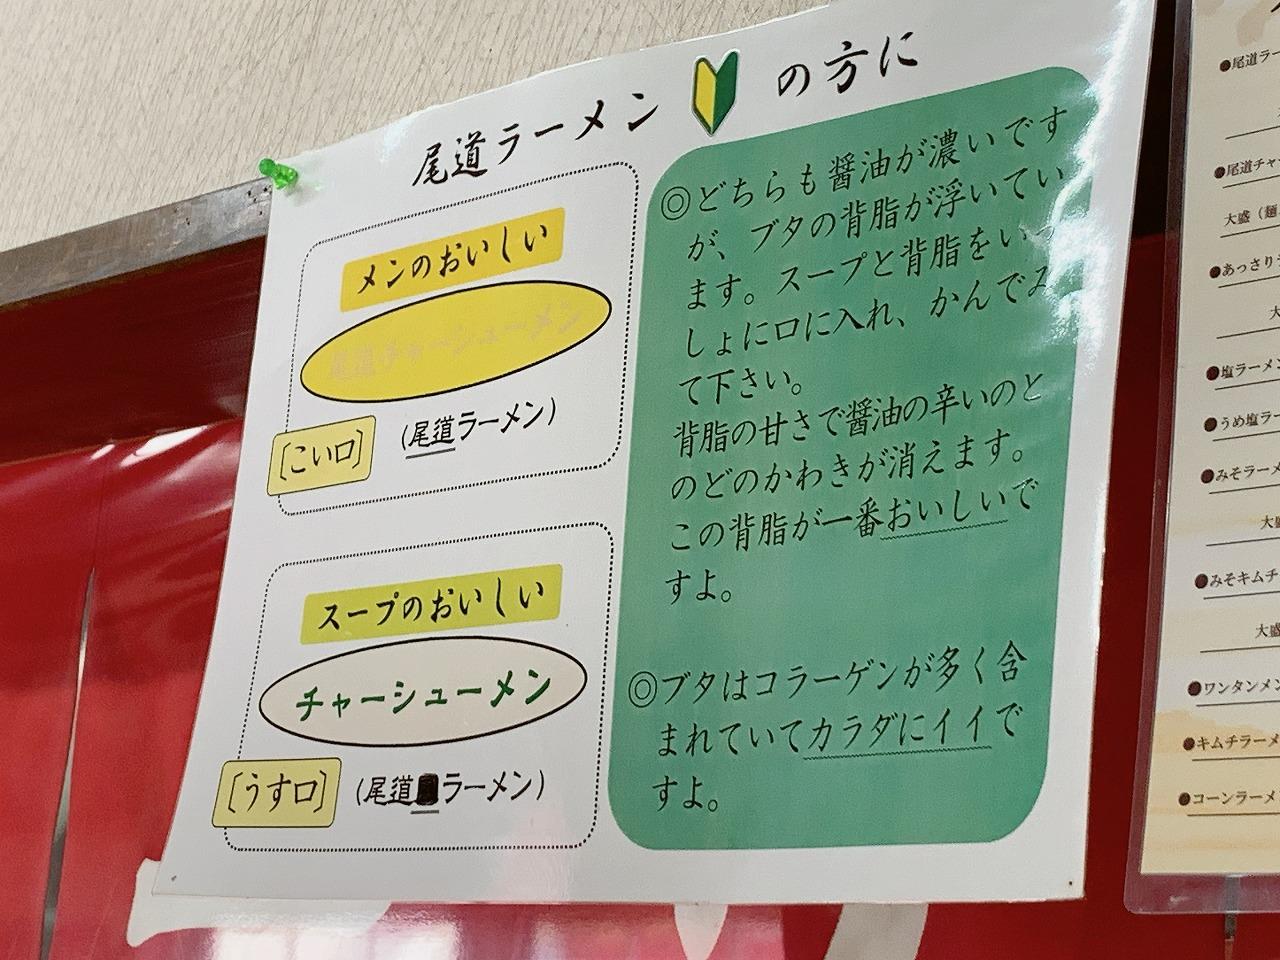 尾道ラーメン の方に
メンのおいしい
尾道チャーシューメン
[こい口]
(尾道ラーメン)
スープのおいしい
チャーシューメン
[うす口]
(尾道 ラーメン)
◎どちらも醤油が濃いです
が、ブタの背脂が浮いてい
ます。スープと背脂をいっ
しょに口に入れ、かんでみ
て下さい。
背脂の甘さで醤油の辛いのと
のどのかわきが消えます。
この背脂が一番おいしいで
すよ。
◎ブタはコラーゲンが多く含
まれていてカラダにイイで
すよ。
●尾道ラー
●尾道チャ
大盛(麺
●あっさり
大
●塩ラーメン
●うめ塩ラー
●みそラーメ
大盛
●みそキムチ
大盛
●ワンタンメン
●キムチラーメ
●コーンラーメ